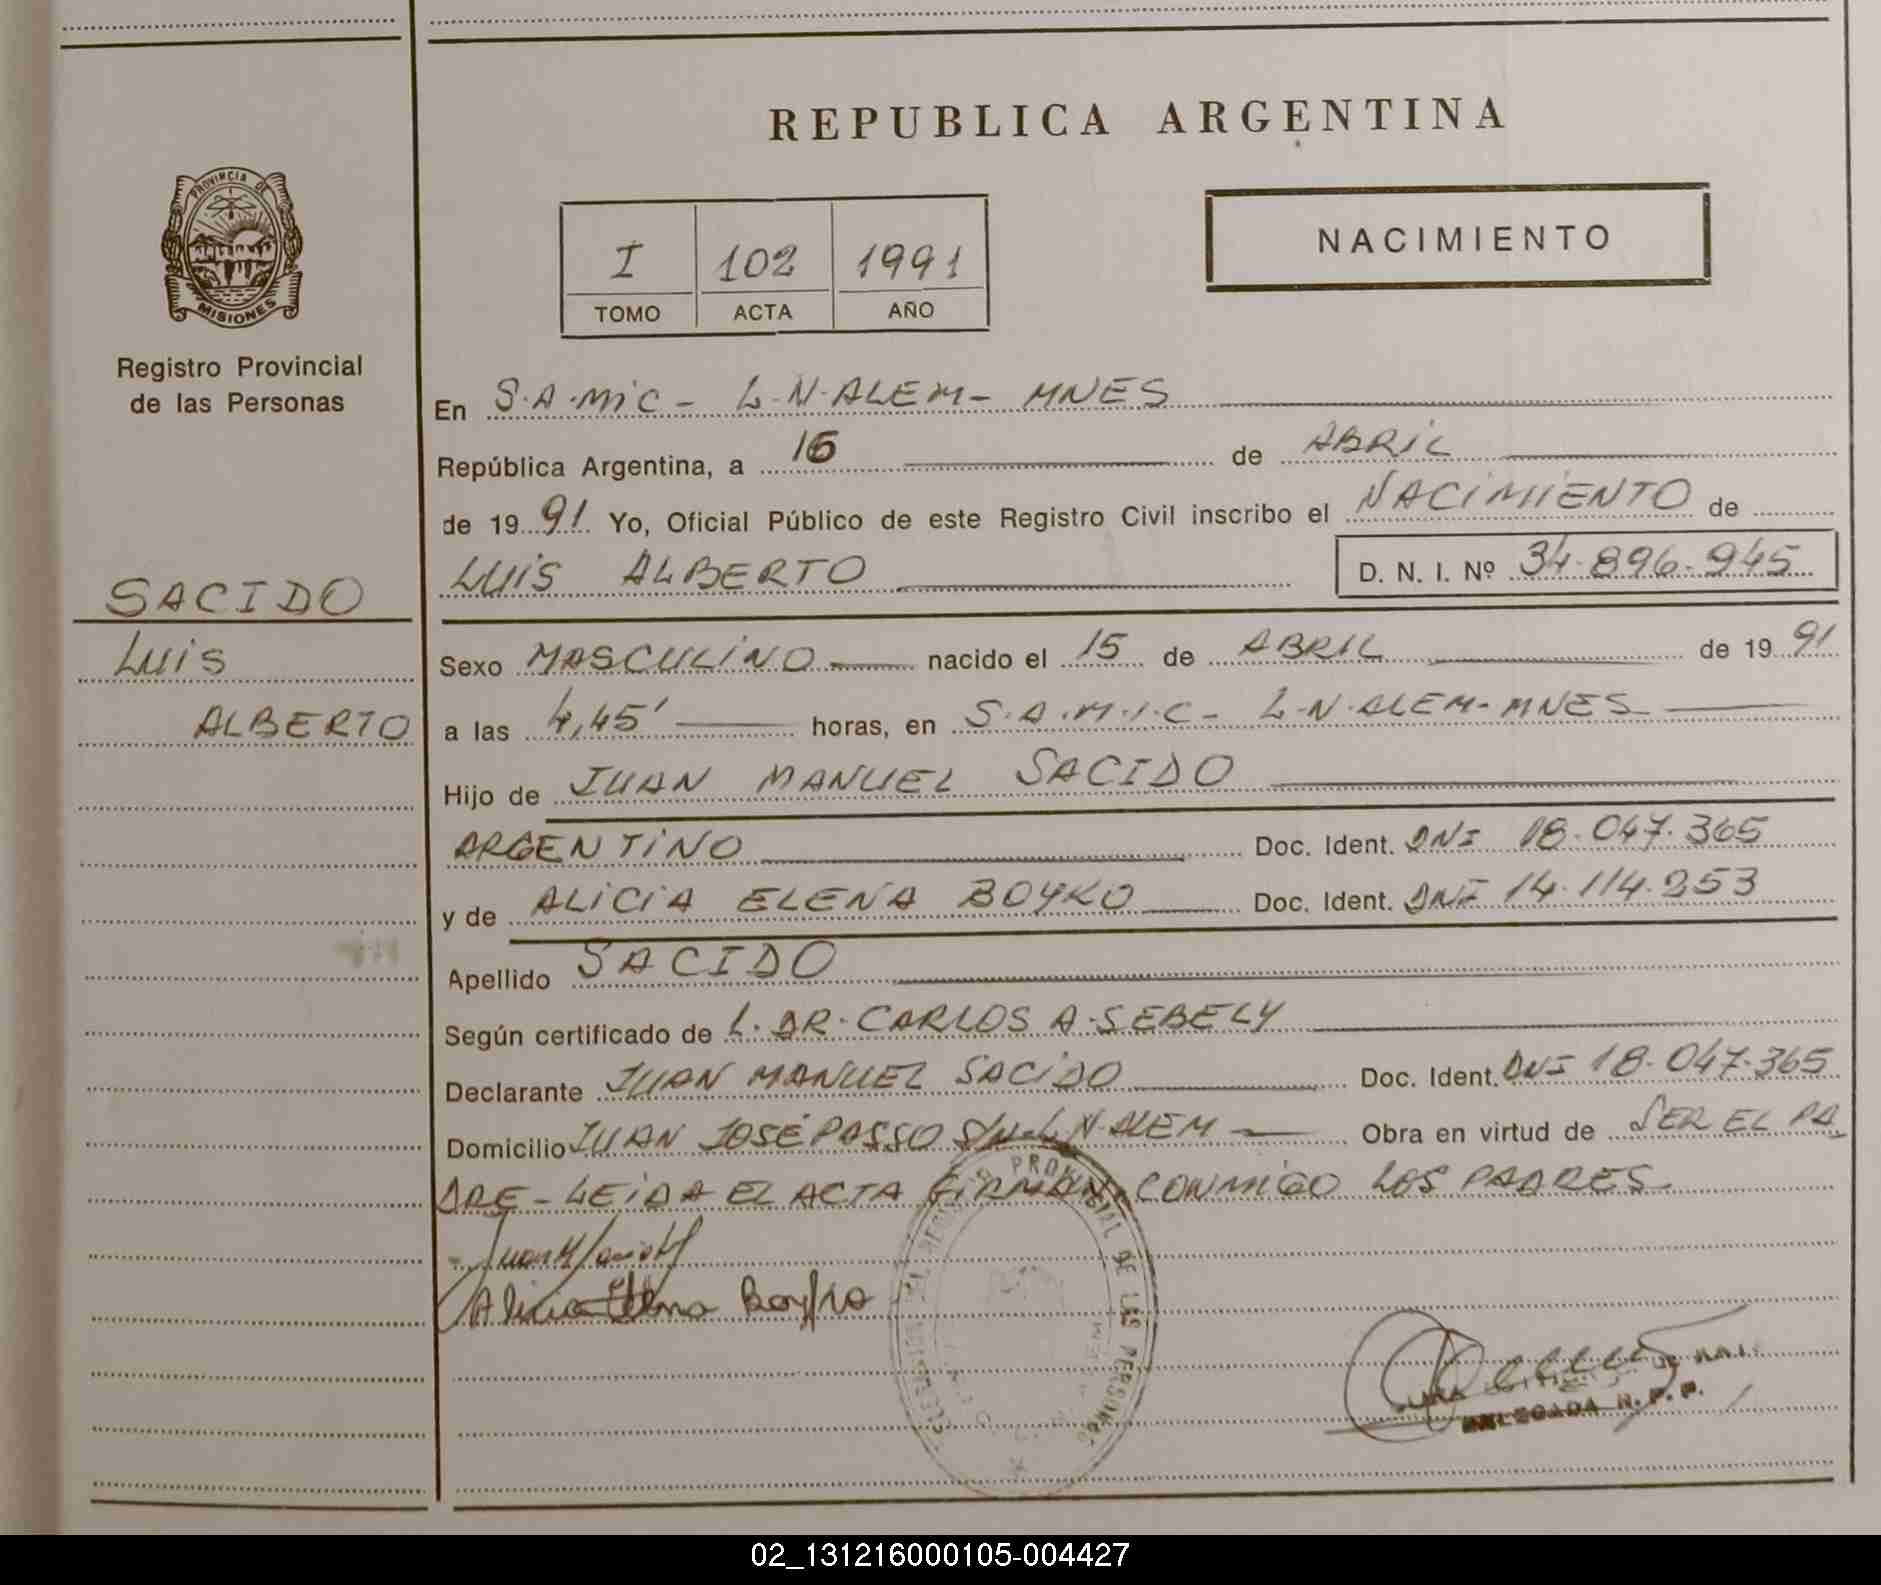 REPUBLICA ARGENTINA
PROVINCIA DE
MISIONES
Registro Provincial
de las Personas
I 102 1991
TOMO ACTA AÑO
NACIMIENTO
SACIDO
LUIS
ALBERTO
En S.A.MIC - L.N.ALEM - MNES
República Argentina, a 16 de ABRIL
de 19 91 Yo, Oficial Público de este Registro Civil inscribo el NACIMIENTO de
LUIS ALBERTO D. N. I. Nº 34.896.945
Sexo MASCULINO nacido el 15 de ABRIL de 19 91
a las 4,45' horas, en S.A.M.I.C - L.N.ALEM-MNES
Hijo de JUAN MANUEL SACIDO
ARGENTINO Doc. Ident. DNI 18.047.365
y de ALICIA ELENA BOYKO Doc. Ident. DNI 14.114.253
Apellido SACIDO
Según certificado de L. DR. CARLOS A. SEBELY
Declarante JUAN MANUEL SACIDO Doc. Ident. DNI 18.047.365
Domicilio JUAN JOSÉ PASSO S/N-L.N.ALEM Obra en virtud de SER EL PA
DRE - LEIDA EL ACTA FIRMAN CONMIGO LOS PADRES
Juan M
Alicia Elena Boyko
PROVINCIAL DE LAS PERSONAS
DELEGADA R. P. P.
02_131216000105-004427